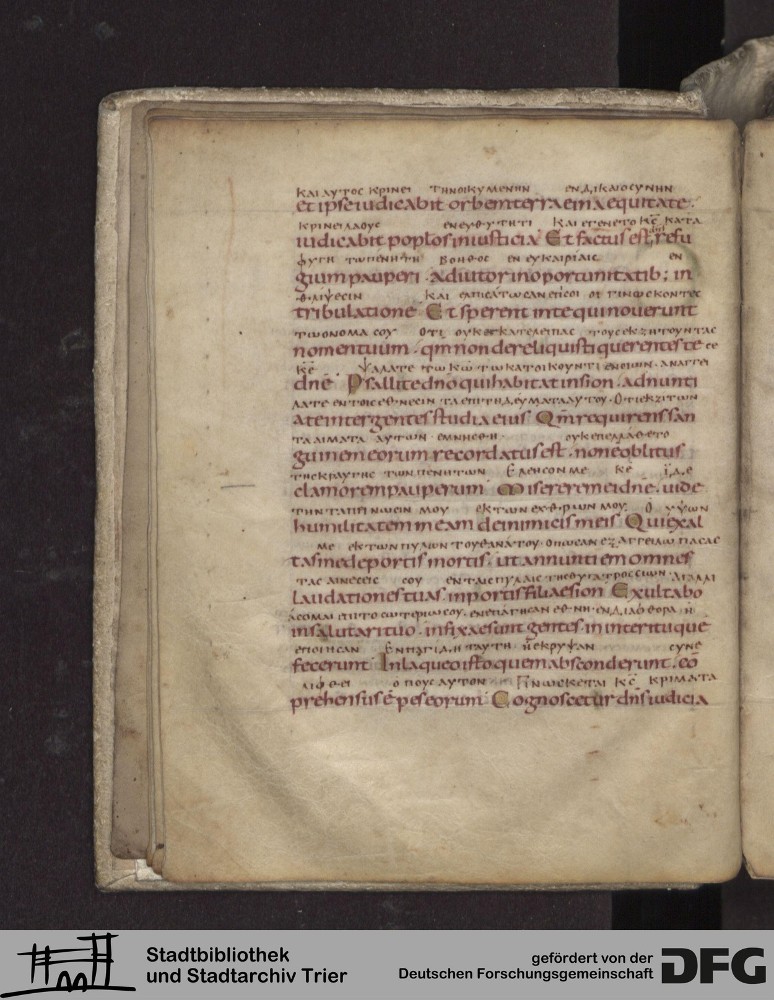 ΚΑΙ ΑΥΤΟC ΚΡΙΝΕΙ ΤΗΝΟΙΚΥΜΕΝΗΝ ΕΝ ΔΙΚΑΙΟCΥΝΗΝ
et ipse iudicabit orbem terrae in aequitate.
ΚΡΙΝΕΙ ΛΑΟΥC ΕΝ ΕΥΘΥΤΗΤΙ ΚΑΙ ΕΓΕΝΕΤΟ Κ̅C̅ ΚΑΤΑ
iudicabit poplos in iusticia Et factus est refu
ΦΥΓΗ ΤΩ ΠΕΝΗΤΗ ΒΟΗΘΟC ΕΝ ΕΥΚΑΙΡΙΑΙC ΕΝ
gium pauperi. adiutor in oportunitatib; in
ΘΛΙΨΕCΙΝ ΚΑΙ ΟΙ ΓΙΝΩCΚΟΝΤΕC
tribulatione Et sperent in te qui nouerunt
ΤΩ ΟΝΟΜΑ CΟΥ ΟΤΙ ΟΥΚ ΤΟΥC ΕΚΖΗΤΟΥΝΤΑC CΕ
nomen tuum. qm̅ non dereliquisti querentes te
Κ̅Ε̅ ΨΑΛΑΤΕ ΤΩ Κ̅Ω̅ ΤΩ ΚΑΤΟΙΚΟΥΝΤΙ ΕΝ CΙΩΝ. ΑΝΑΓΓΕΙ
dn̅e. Psallite dn̅o qui habitat in sion. adnunti
ΛΑΤΕ ΕΝ ΤΟΙC ΕΘΝΕCΙΝ ΤΑ ΕΠΙΤΗΔΕΥΜΑΤΑ ΑΥΤΟΥ. ΟΤΙ ΕΚΖΙΤΩΝ
ate inter gentes studia eius Qm̅ requirens san
ΤΑ ΑΙΜΑΤΑ ΑΥΤΩΝ ΕΜΝΗCΘΗ. ΟΥΚ ΕΠΕΛΑΘΕΤΟ
guinem eorum recordatus est. non e̅ oblitus
ΤΗC ΚΡΑΥΓΗC ΤΩΝ ΠΕΝΗΤΩΝ ΕΛΕΗCΟΝ ΜΕ Κ̅Ε̅ ΙΔΕ
clamorem pauperum Miserere mei dn̅e. uide
ΤΗΝ ΤΑΠΙΝΩCΙΝ ΜΟΥ ΕΚ ΤΩΝ ΕΧΘΡΩΝ ΜΟΥ Ο ΥΨΩΝ
humilitatem meam de inimicis meis Qui exal
ΜΕ ΕΚ ΤΩΝ ΠΥΛΩΝ ΤΟΥ ΘΑΝΑΤΟΥ. ΟΠΩC ΑΝ ΕΞΑΓΓΕΙΛΩ ΠΑCΑC
tas me de portis mortis. ut annuntiem omnes
ΤΑC ΑΙΝΕCΕΙC CΟΥ ΕΝ ΤΑΙC ΠΥΛΑΙC ΤΗC ΘΥΓΑΤΡΟC CΙΩΝ. ΑΓΑΛΛΙ
laudationes tuas. in portis filiae sion Exultabo
ΑCΟΜΑΙ ΕΠΙ ΤΟ CΩΤΕΡΙΩ CΟΥ. ΕΝΕΠΑΓΗCΑΝ ΕΘΝΗ ΕΝ ΔΙΑΦΘΟΡΑ Η
in salutari tuo. infixae sunt gentes. in interitu que
ΕΠΟΙΗCΑΝ ΕΝ ΠΑΓΙΔΗ ΤΑΥΤΗ ΗC ΕΚΡΥΨΑΝ CΥΝΕ
fecerunt In laqueo isto quem absconderunt. co̅
ΛΙΦΘΕΙ Ο ΠΟΥC ΑΥΤΟΝ ΓΙΝΩCΚΕΤΑΙ Κ̅C̅ ΚΡΙΜΑΤΑ
prehensus e̅ pes eorum Cognoscetur dn̅s iudicia
Stadtbibliothek
und Stadtarchiv Trier
gefördert von der
Deutschen Forschungsgemeinschaft
DFG